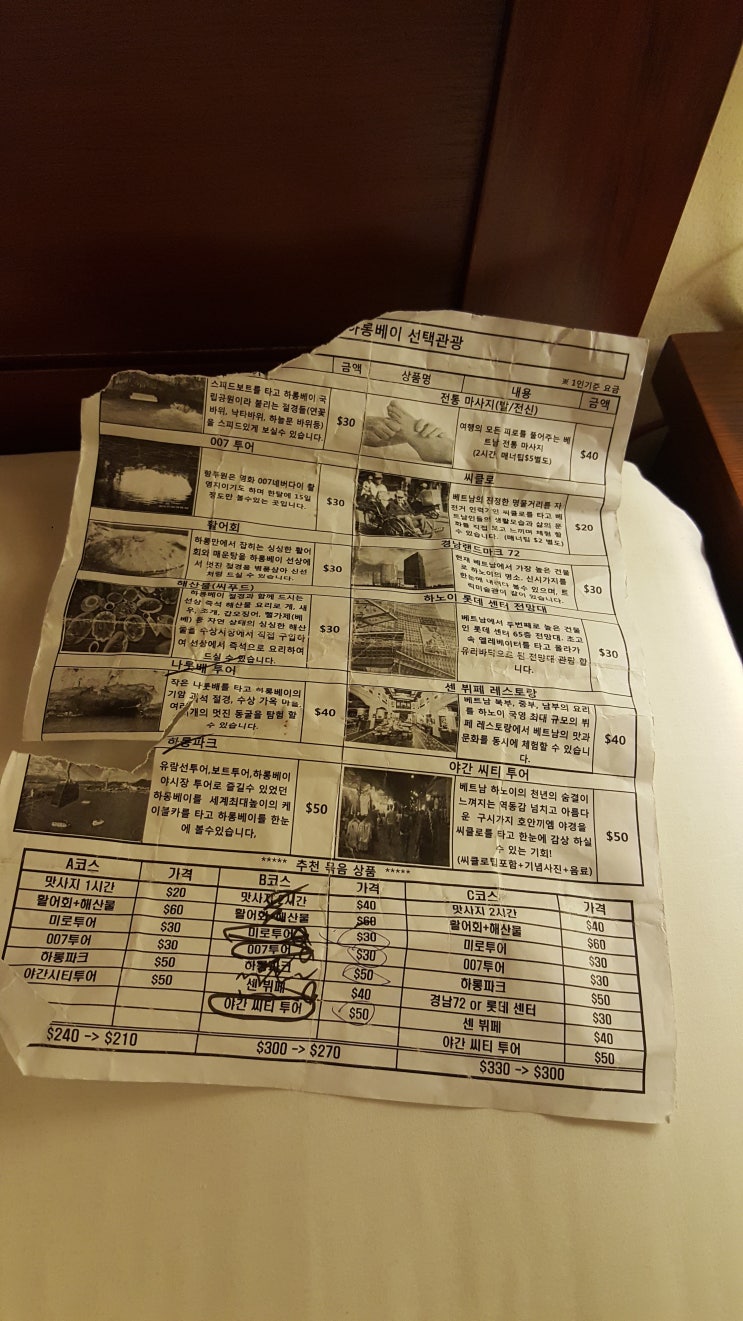 하롱베이 선택관광
※ 1인기준 요금
금액
상품명
내용
금액
스피드보트를 타고 하롱베이 국
립공원이라 불리는 절경들(연꽃
바위, 낙타바위, 하늘문 바위등)
을 스피드있게 보실수 있습니다.
$30
전통 마사지(발/전신)
여행의 모든 피로를 풀어주는 베
트남 전통 마사지
(2시간, 매너팁$5별도)
$40
007 투어
항루원은 영화 007네버다이 촬
영지이기도 하며 한달에 15일
정도만 볼수있는 곳입니다.
$30
씨클로
베트남의 진정한 명물거리를 자
전거 인력거인 씨클로를 타고 베
트남인들의 생활모습과 삶의 문
화를 직접 보고 느끼며 체험 할
수 있습니다. (매너팁 $2 별도)
$20
활어회
하롱만에서 잡히는 싱싱한 활어
회와 매운탕을 하롱베이 선상에
서 멋진 절경을 병풍삼아 신선
처럼 드실 수 있습니다.
$30
경남랜드마크 72
현재 베트남에서 가장 높은 건물
로 하노이의 명소, 신시가지를
한눈에 내려다 볼수 있으며, 트
릭미술관이 같이 있습니다.
$30
해산물(씨푸드)
하롱베이 절경과 함께 드시는
선상 즉석 해산물 요리로 게, 새
우, 조개, 갑오징어, 뻘가재(베
베) 륟 자연 상태의 싱싱한 해산
물을 수상시장에서 직접 구입하
여 선상에서 즉석으로 요리하여
드실 수 있습니다.
$30
하노이 롯데 센터 전망대
베트남에서 두번째로 높은 건물
인 롯데 센터 65층 전망대. 초고
속 엘레베이터를 타고 올라가
유리바닥으로 된 전망대 관람 합
니다.
$30
나룻배 투어
작은 나룻배를 타고 하롱베이의
기암 괴석 절경, 수상 가옥 마을,
여러 개의 멋진 동굴을 탐험 할
수 있습니다.
$40
센 뷔페 레스토랑
베트남 북부, 중부, 남부의 요리
를 하노이 국영 최대 규모의 뷔
페 레스토랑에서 베트남의 맛과
문화를 동시에 체험할 수 있습니
다.
$40
하롱파크
유람선투어,보트투어,하롱베이
야시장 투어로 즐길수 있었던
하롱베이를 세계최대높이의 케
이블카를 타고 하롱베이를 한눈
에 볼수있습니다.
$50
야간 씨티 투어
베트남 하노이의 천년의 숨결이
느껴지는 역동감 넘치고 아름다
운 구시가지 호안끼엠 야경을
씨클로를 타고 한눈에 감상 하실
수 있는 기회!
(씨클로팁포함+기념사진+음료)
$50
***** 추천 묶음 상품 *****
A코스 가격 B코스 가격 C코스 가격
맛사지 1시간 $20 맛사지 2시간 $40 맛사지 2시간 $40
활어회+해산물 $60 활어회+해산물 $60 활어회+해산물 $60
미로투어 $30 미로투어 $30 미로투어 $30
007투어 $30 007투어 $30 007투어 $30
하롱파크 $50 하롱파크 $50 하롱파크 $50
야간시티투어 $50 센 뷔페 $40 경남72 or 롯데 센터 $30
야간 씨티 투어 $50 센 뷔페 $40
야간 씨티 투어 $50
$240 -> $210 $300 -> $270 $330 -> $300